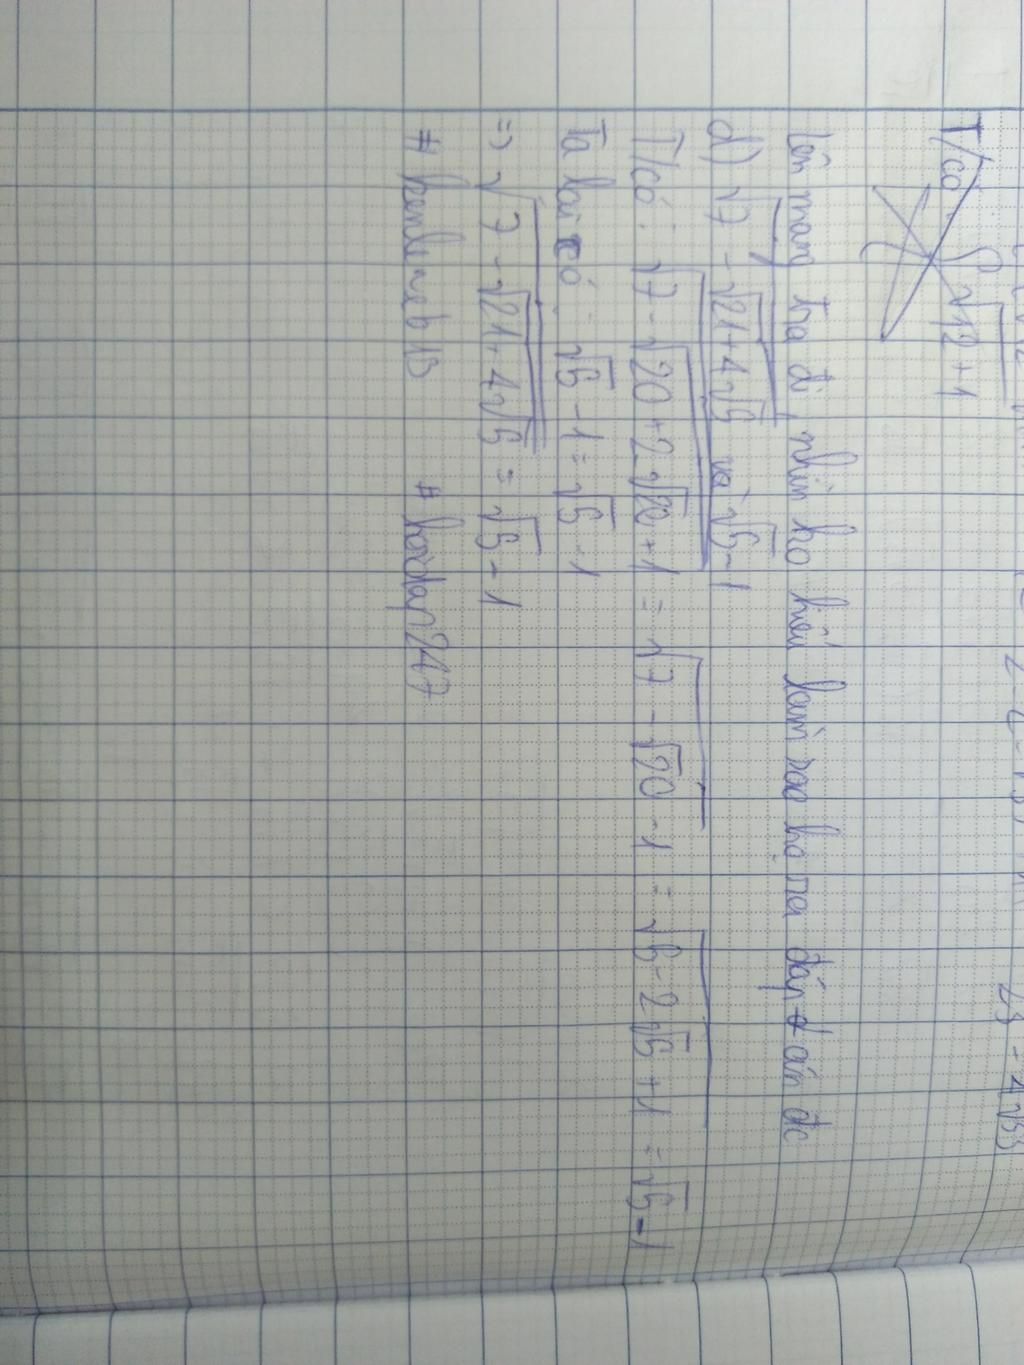 T/có √12+1
lên mạng tra đi, nhìn họ hiểu làm sao họ ra đáp án đc
d) √(7-√(21+4√5)) và √5-1
T/có: √(7-√(20+2√20+1)) = √(7-√20-1) = √(6-2√5+1) = √5-1
Ta lại có: √5-1=√5-1
=> √(7-√(21+4√5)) = √5-1
#hoidap247